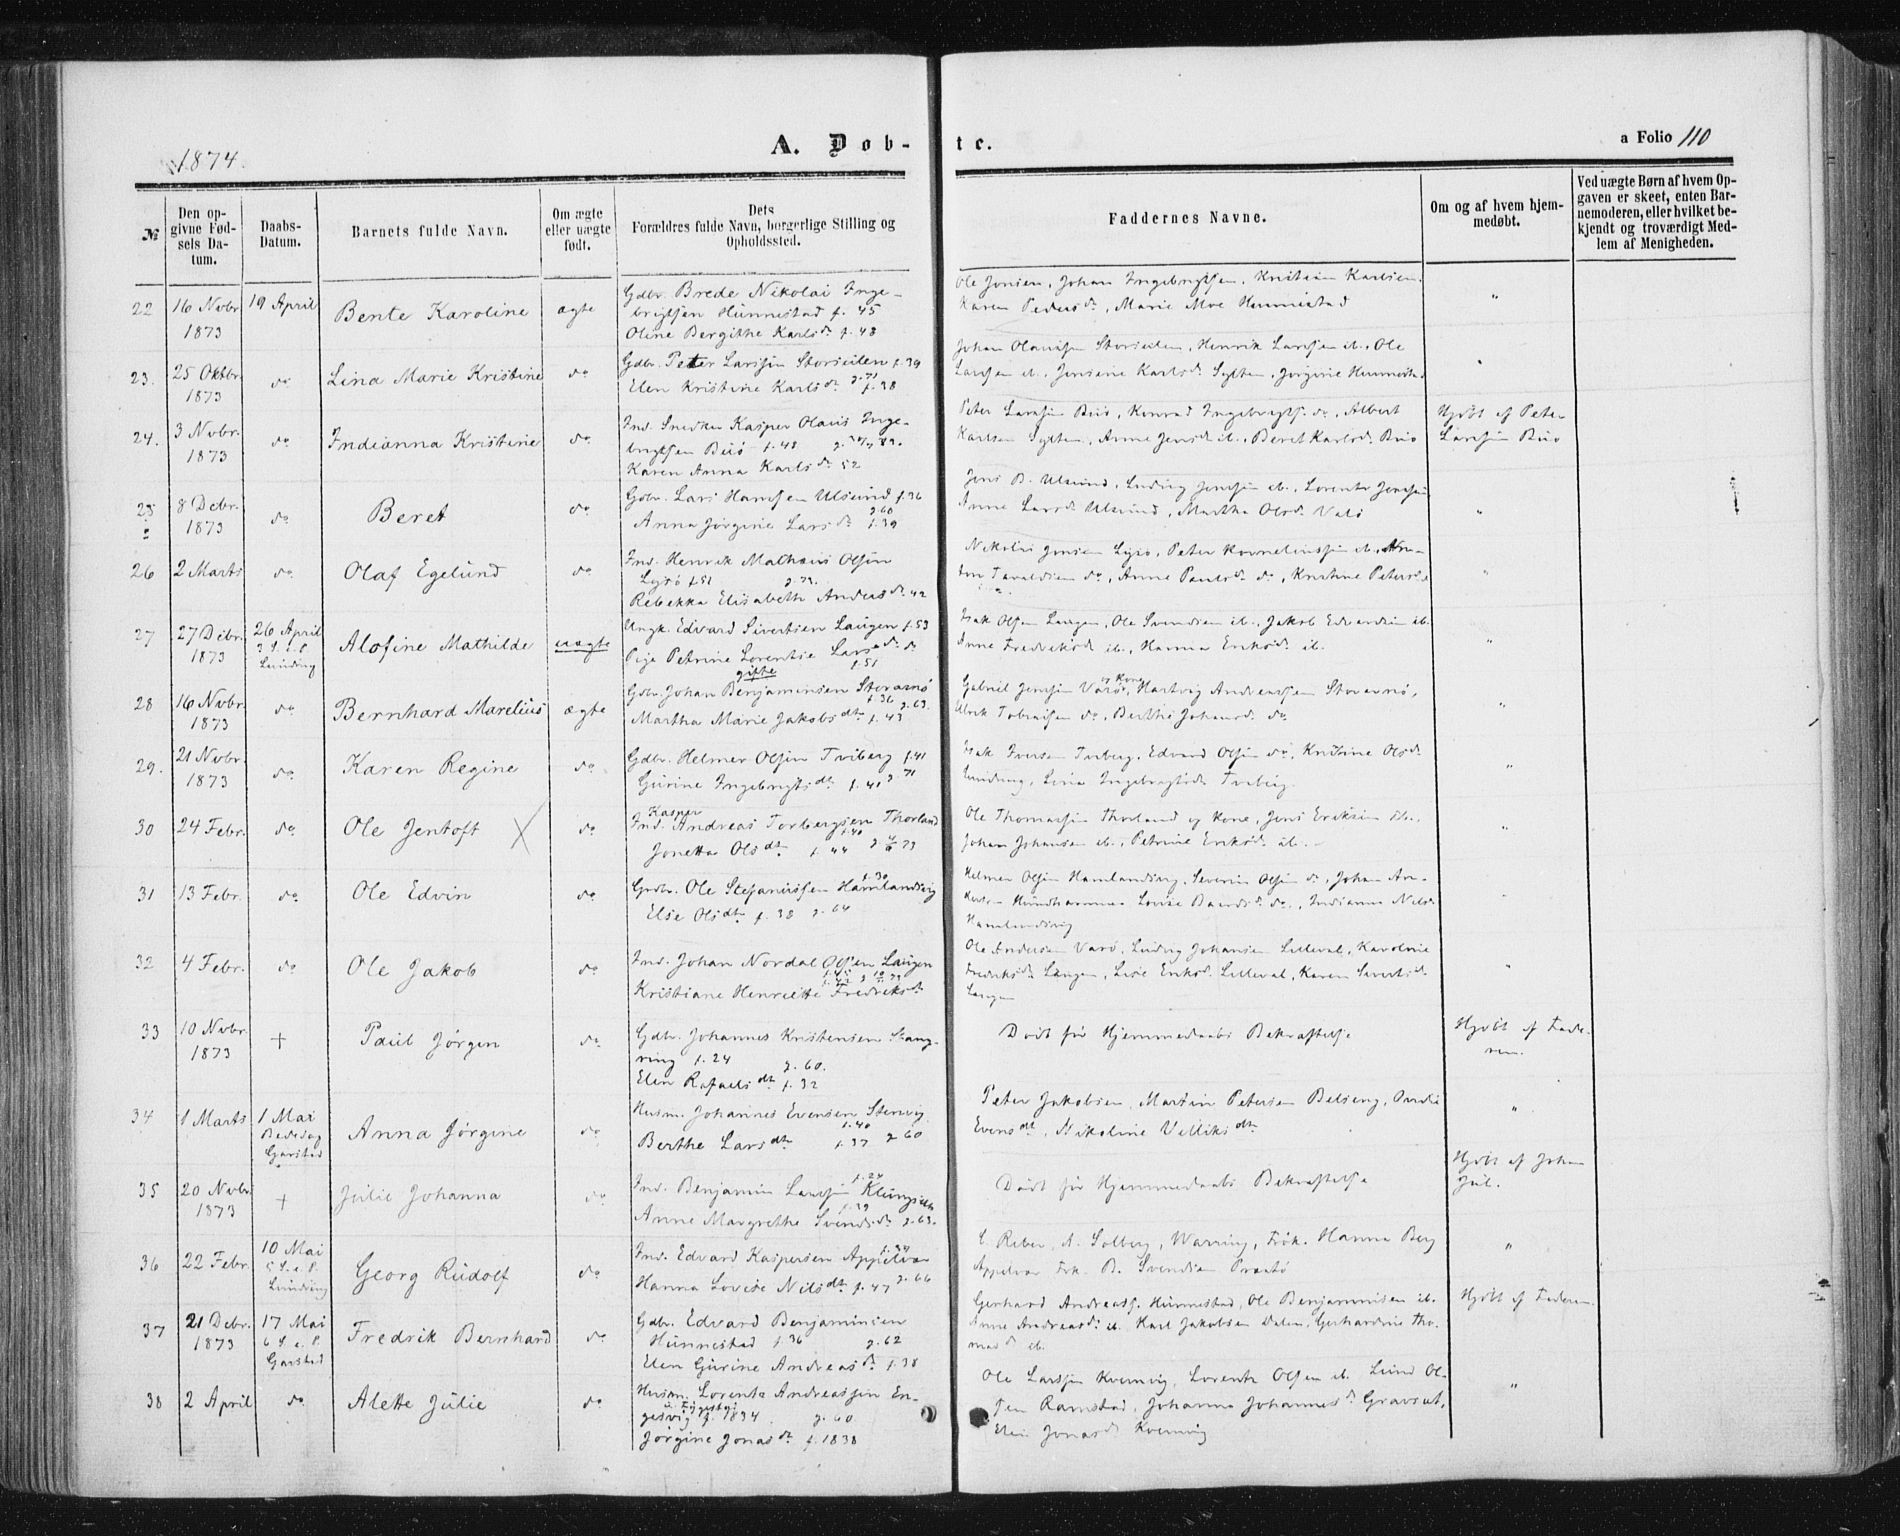 1874.
A. Døb-
te.
a Folio 110
№
Den opgivne Fødsels Datum.
Daabs-Datum.
Barnets fulde Navn.
Om ægte eller uægte født.
Dets Forældres fulde Navn, borgerlige Stilling og Opholdssted.
Faddernes Navne.
Om og af hvem hjemmedøbt.
Ved uægte Børn af hvem Opgaven er skeet, enten Barnemoderen, eller hvilket bekjendt og troværdigt Medlem af Menigheden.
22 16 Novbr 1873 19 April Bente Karoline ægte
Gdbr. Brede Nikolai Inge-
brigtsen Hunnestad f. 45
Oline Bergithe Karlsd. f. 48
Ole Jonsen, Johan Ingebrigtsen, Kristian Karlsen
Karen Pedersd., Marie Moe Hunnestad
"
23. 25 Oktbr. 1873 do Lina Marie Kristine do
Gdbr. Peter Larssen Storeilen f. 39
Elen Kristine Karlsd. g. 71 f. 38
Johan Olaussen Storeilen, Henrik Larssen ib., Ole
Larssen ib., Jensine Karlsd. Sylten, Jørgine Hunnestad
"
24. 3 Novbr. 1873 do Indianna Kristine do
Ind. Snedker Kasper Olaus Inge-
brigtsen Buø f. 48
Karen Anna Karlsd. 52
Peter Larssen Buø, Konrad Ingebrigts. do, Albert
Karlsen Sylten, Anne Jensd. ib., Beret Karlsd. Buø
Hjdbt af Peter
Larssen Buø
25 8 Debr. 1873 do Beret do
Gdbr. Lars Hansen Ulsund f. 36
Anna Jørgine Larsd. g. 60 f. 39
Jens B. Ulsund, Ludvig Jenssen ib., Lorents Jenssen
Anne Larsd. Ulsund, Martha Olsd. Valø
"
26 2 Marts do Olaf Egelund do
Ind. Henrik Mathæus Olssen
Lysø f. 51 g. 72.
Rebekka Elisabeth Andersd. 42
Nikolai Jensen Lysø, Peter Korneliussen ib., An-
ton Tavaldsen do, Anne Paulsd. do, Kristine Petersd.
"
27 27 Debr. 1873 26 April 3 S. e. P. Lunding Alofine Mathilde uægte
Ungk. Edvard Sivertsen Laugen f. 53
Pige Petrine Lorentse Larsd. do f. 51
Isak Olsen Laugen, Ole Svendsen ib., Jakob Edvardsen ib.
Anne Fredriksd. ib., Hanna Eriksd. ib.
"
28 16 Novbr. 1873 do Bernhard Marelius ægte
gifte
Gdbr. Johan Benjaminsen Storarnø
f. 36 g. 63.
Martha Marie Jakobsdt. f. 43
Gabriel Jenssen Varø og Kone, Hartvig Andreassen Storarnø,
Ulrik Tobiassen do, Berthe Johansd. do
"
29. 21 Novbr. 1873 do Karen Regine do
Gdbr. Helmer Olssen Tviberg f. 41
Gurine Ingebrigtsdt. f. 41 g. 71
Isak Iversen Tviberg, Edvard Olssen do, Kristine Olsd.
Lunding, Lina Ingebrigtsd. Tviberg
"
30 24 Febr. do Ole Jentoft X do
Kasper
Ind. Andreas Torbergsen Thorland
f. 40
Jonetta Olsdt. f. 44
Ole Thomassen Thorland og Kone, Jens Eriksen ib.
Johan Johansen ib., Petrine Eriksd. ib.
"
31 13 Febr. do Ole Edvin do
Grdbr. Ole Stefanussen Hamlandsvig f. 30
Else Olsdt. f. 38 g. 64
Helmer Olssen Hamlandsvig, Severin Olssen do, Johan An-
Hundhammer Lovise Baardsd. do., Indianna Nilsd.
Hamlandsvig
"
32 4 Febr. do Ole Jakob do
Ind. Johan Nordal Olsen Laugen
Kristiane Henriette Fredriksdt.
Ole Andersen Varø, Ludvig Johansen Lilleval, Karoline
Fredriksd. Laugen, Lise Eriksd. Lilleval, Karen Sivertsd.
Laugen
"
33 10 Novbr. 1873 + Paul Jørgen do
Gdbr. Johannes Kristensen Stang-
ring f. 24 g. 60.
Elen Rafaelsdt. f. 32
Dødt før Hjemmedaabs Bekræftelse
Hjdbt af Fade-
ren.
34 1 Marts 1 Mai Bededag Garstad Anna Jørgine do
Husm. Johannes Evensen Stenvig
f. 40
Berthe Larsdt. f. 37 g. 60
Peter Jakobsen, Martin Petersen Belseng,
Evensdt., Nikoline Villiksdt.
"
35 20 Novbr. 1873 + Julie Johanna do
Ind. Benjamin Larssen f. 24
f. 39
Anne Margrethe Svendsd. g. 63.
Dødt før Hjemmedaabs Bekræftelse
Hjdbt af Johan
Jul.
36 22 Febr. 10 Mai 5 S. e. P. Lunding Georg Rudolf do
Ind. Edvard Kaspersen Appelvær
Hanna Lovise Nilsdt. f. 47 g. 66
C. Reber, A. Solberg, Warring, Frøk. Hanna Berg
Appelvær Frk. B. Svendsen Præstø
"
37 21 Debr. 1873 17 Mai 6 S. e. P. Garstad Fredrik Bernhard do
Gdbr. Edvard Benjaminsen
Hunnestad f. 36 g. 62
Elen Gurine Andreasd. f. 38
Gerhard Andreass. Hunnestad, Ole Benjaminsen ib.
Anne Andreasd. ib. Karl Jakobsen Dalen, Gerhardine Tho-
masd. ib.
Hjdbt af Faderen
38 2 April do Alette Julie do
Husm. Lorents Andreassen En-
gesvig f. 1834. g. 60
Jørgine Jonasd. f. 1838
Ole Larssen Kvennvig, Lorents Olsen ib. Lund Ol-
sen Ramstad, Johanna Johannesd. Gravset,
Elen Jonasd. Kvennvig
"